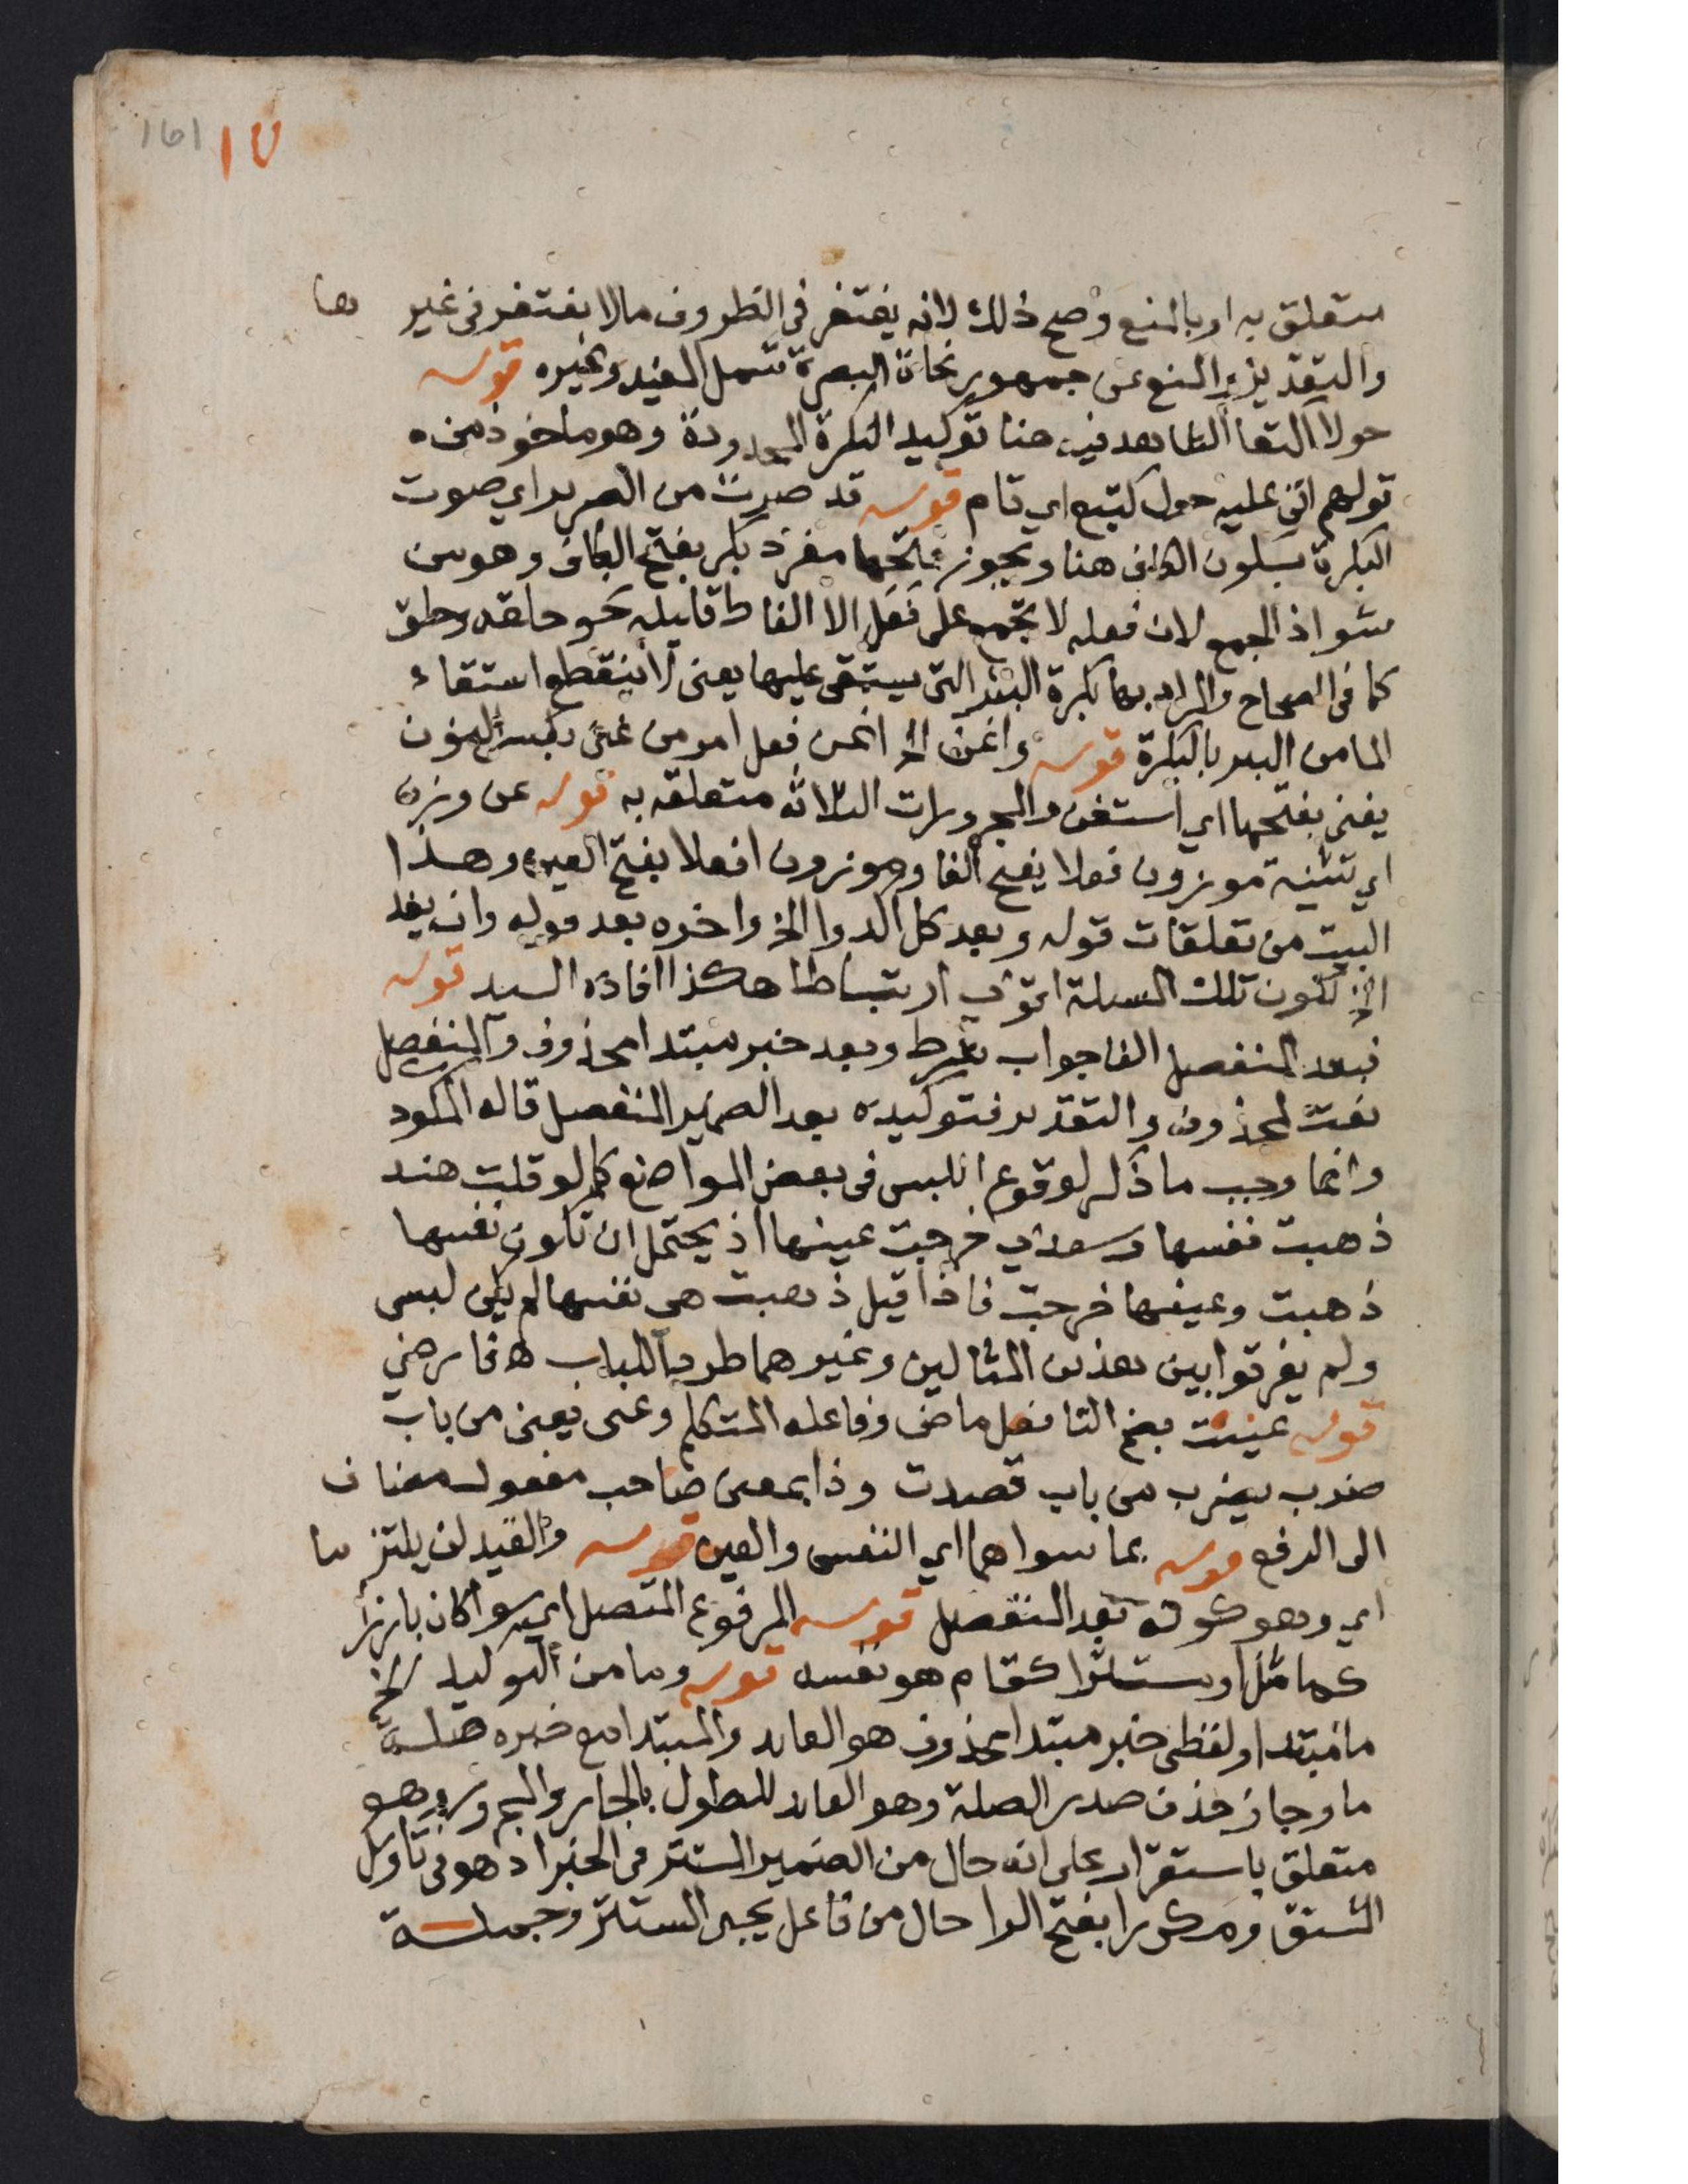 161 ١٧
متعلق به او بالمنع وصح ذلك لانه يغتفر في الظروف مالا يغتفر في غير ها
والتقدير والمنع عن جمهور نحاة البصرة شمل المفيد وغيره قوله
حولا اكتعا الشاهد فيه هنا توكيد النكرة المحدودة وهو ماخوذ من
قولهم اتى عليه حول كتيع اي تام قوله قد صرت من الصرير اي صوت
البكرة بسكون الكاف هنا ويجوز فتحها مفرد بكر بفتح الكاف وهو من
شواذ الجمع لان فعله لا تجمع على فعل الا الفاظ قليله نحو حلقه وحلق
كما في الصحاح والمراد بها بكرة البئر التي يستقى عليها يعنى لا ينقطع استقاء
الما من البير بالبكرة قوله واغن الخ اغن فعل امر من غنى بكسر النون
يغنى بفتحها اي استغن والمجرورات الثلاثه متعلقه به قوله عن وزن
اي تثنية موزون فعلا بفتح الفا وموزون افعلا بفتح العين وهذا
البيت من تعلقات قوله وبعد كل اكدوا الخ واخره بعد قوله وان يفد
الخ لكون تلك المسلة اقوى ارتباطا هكذا افاده السيد قوله
فبعد المنفصل الفا جواب شرط وبعد خبر مبتدا محذوف والمنفصل
نعت لمحذوف والتقدير فتوكيده بعد الضمير المنفصل قاله المكود
وانما وجب ما ذكر لوقوع اللبس في بعض المواضع كما لو قلت هند
ذهبت نفسها وسعدي خرجت عينها اذ يحتمل ان تكون نفسها
ذهبت وعينها خرجت فاذا قيل ذهبت هي نفسها لم يكن لبس
ولم يفرقوا بين هذين المثالين وغيرهما طردا للباب اه فارضي
قوله عنيت بضم التا فعل ماضى وفاعله المتكلم وعنى يعنى من باب
ضرب يضرب من باب قصدت وذا بمعنى صاحب مفعول مضاف
الى الرفع قوله بما سواهما اي النفس والعين قوله والقيد لن يلتزما
اي وهو كونه بعد المنفصل قوله المرفوع المتصل اي سوا كان بارزا
كما مثل او مستترا كقام هو نفسه قوله وما من التوكيد الخ
ما مبتدا ولفظى خبر مبتدا محذوف هو العايد والمبتدا مع خبره صلة
ما وجاز حذف صدر الصلة وهو العايد للطول بالجار والمجرور وهو
متعلق باستقرار على انه حال من الضمير المستتر في الخبر اذ هو في تاويل
المشتق ومكررا بفتح الرا حال من فاعل يجى المستتر وجملة